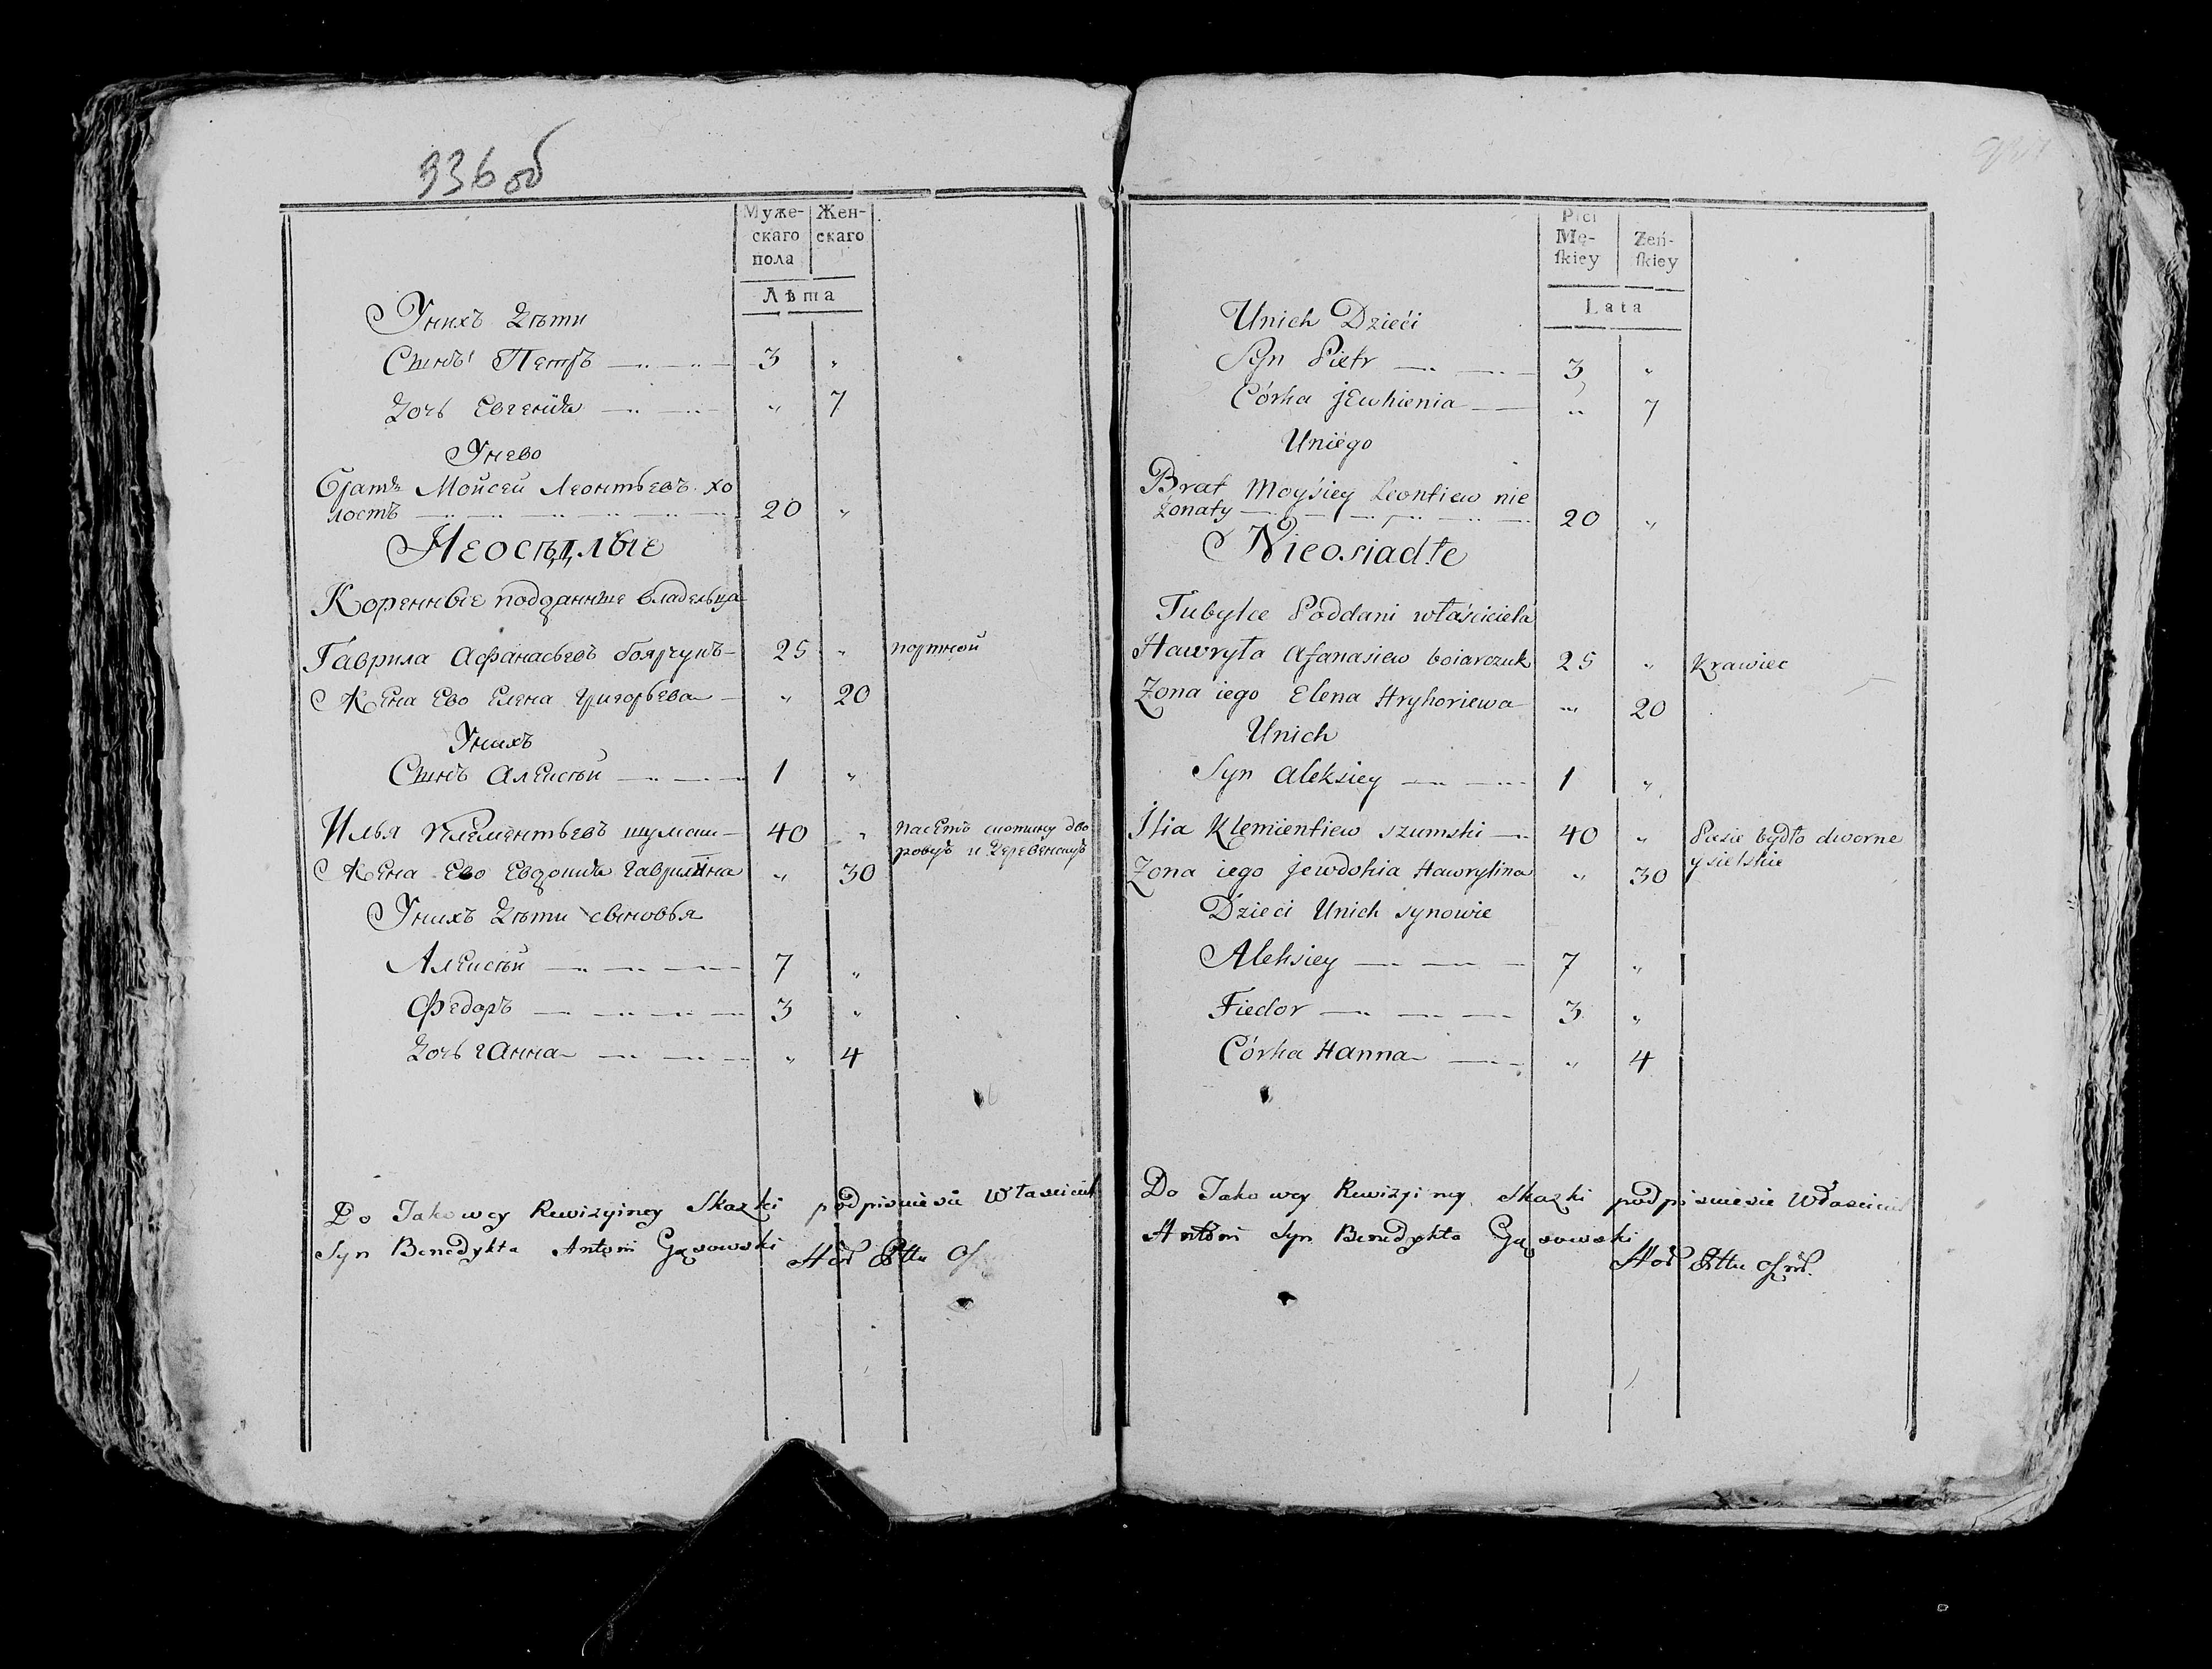 936 об
Муже-
скаго
пола
Жен-
скаго
Лѣта
Унихъ дѣти
Сынъ Петръ 3 „
Дочь Евгенiя „ 7
Унево
Братъ Мойсей Леонтьевъ хо
лостъ 20 „
Неосѣдлые
Коренные подданные владельца
Гаврила Афанасьевъ боярчукъ 25 „ портной
Жена Ево Елена Григорьева „ 20
Унихъ
Сынъ Алексѣй 1 „
Илья Клементьевъ шумски 40 „ пасетъ скотину дво
ровую и деревенскую
Жена Ево Евдокия гаврилина „ 30
Унихъ дѣти сыновья
Алексѣй 7 „
Федоръ 3 „
Дочь ганна „ 4
Do Takowey Rewizyiney Skazki podpisuiesie Właściciel
Syn Benedykta Antoni Gąsowski
Płci
Mę-
skiey
Żeń-
skiey
Lata
Unich Dzieći
Syn Pietr 3 „
Córka JEwhienia „ 7
Uniego
Brat Moyśiey Leontiew nie
żonaty 20 „
Nieosiadłe
Tubylce Poddani właściciela
Hawryła Afanasiew boiarczuk 25 „ Krawiec
Zona iego Elena Hryhoriewa „ 20
Unich
Syn Aleksiey 1 „
Ilia Klemientiew szumski 40 „ Pasie bydło dworne
y sielskie
Zona iego Jewdokia Hawrylina „ 30
Dzieci Unich synowie
Aleksiey 7 „
Fiedor 3 „
Córka Hanna „ 4
Do Takowey Rewizyiney Skazki podpisuiesie Właściciel
Antoni Syn Benedykta Gąsowski